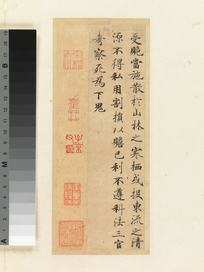 受賂當施散於山林之寒栖或投東流之清
源不得私用割損以贍己利不遵科法三官
考察死為下鬼